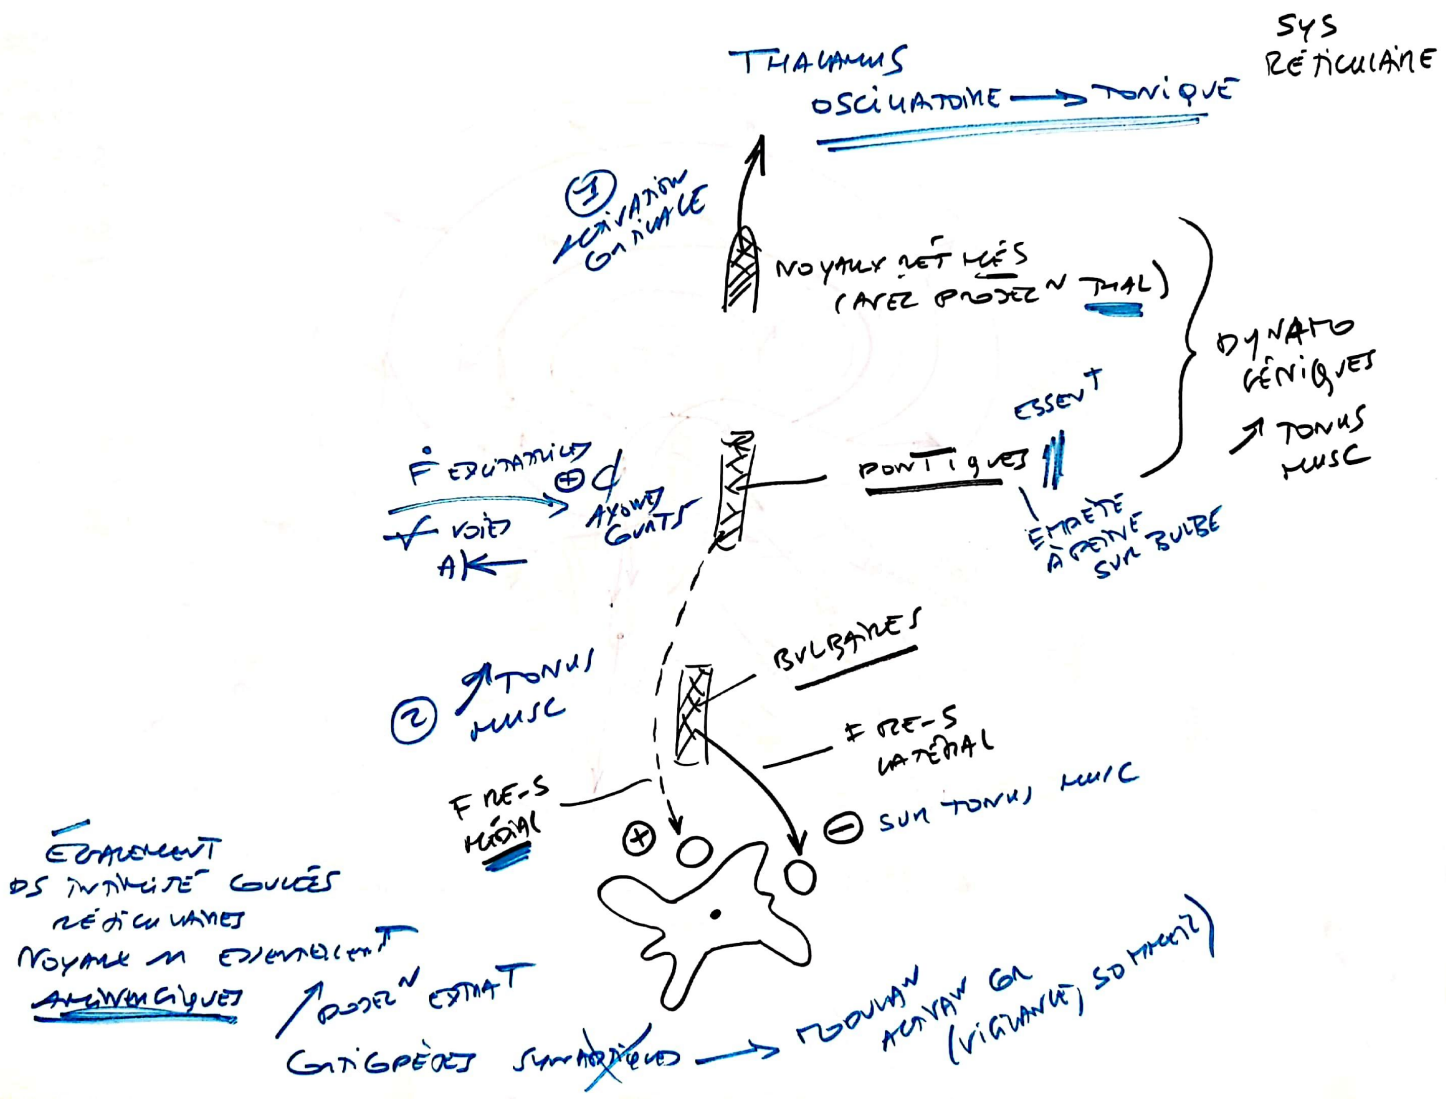 SYS
RÉTICULAIRE
THALAMUS
OSCILLATOIRE → TONIQUE
1
ACTIVATION
CORTICALE
NOYAUX RÉT MÉS
(AVEC PROJEC N THAL)
DYNAMO
GÉNIQUES
↗ TONUS
MUSC
ESSEN T
PONTIQUES
EMPIÈTE
À PEINE
SUR BULBE
F EXCITATRICES
+
AXONES
COURTS
VOIES
A
BULBAIRES
2
↗ TONUS
MUSC
F RE-S
LATÉRAL
F RE-S
MÉDIAL
+
− SUR TONUS MUSC
ÉGALEMENT
DS INTIMITÉ COULÉES
RÉTICULAIRES
NOYAUX M ESSENTIELLEMENT
AMINERGIQUES
↗ PROJEC N EXTRA T
CORTICOPÈTES SYNAPTIQUES → MODULAN
ACTIVAN COR
(VIGILANCE, SOMMEIL)